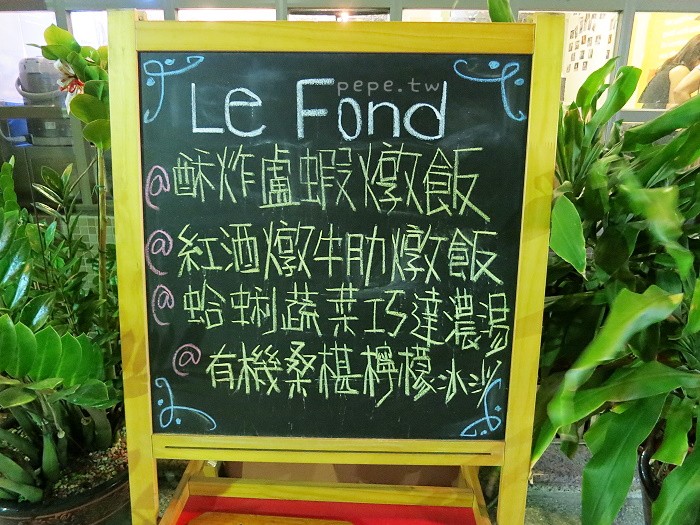 pepe.tw
Le Fond
@酥炸盧蝦燉飯
@紅酒燉牛肋燉飯
@蛤蜊蔬菜巧達濃湯
@有機桑椹檸檬冰沙